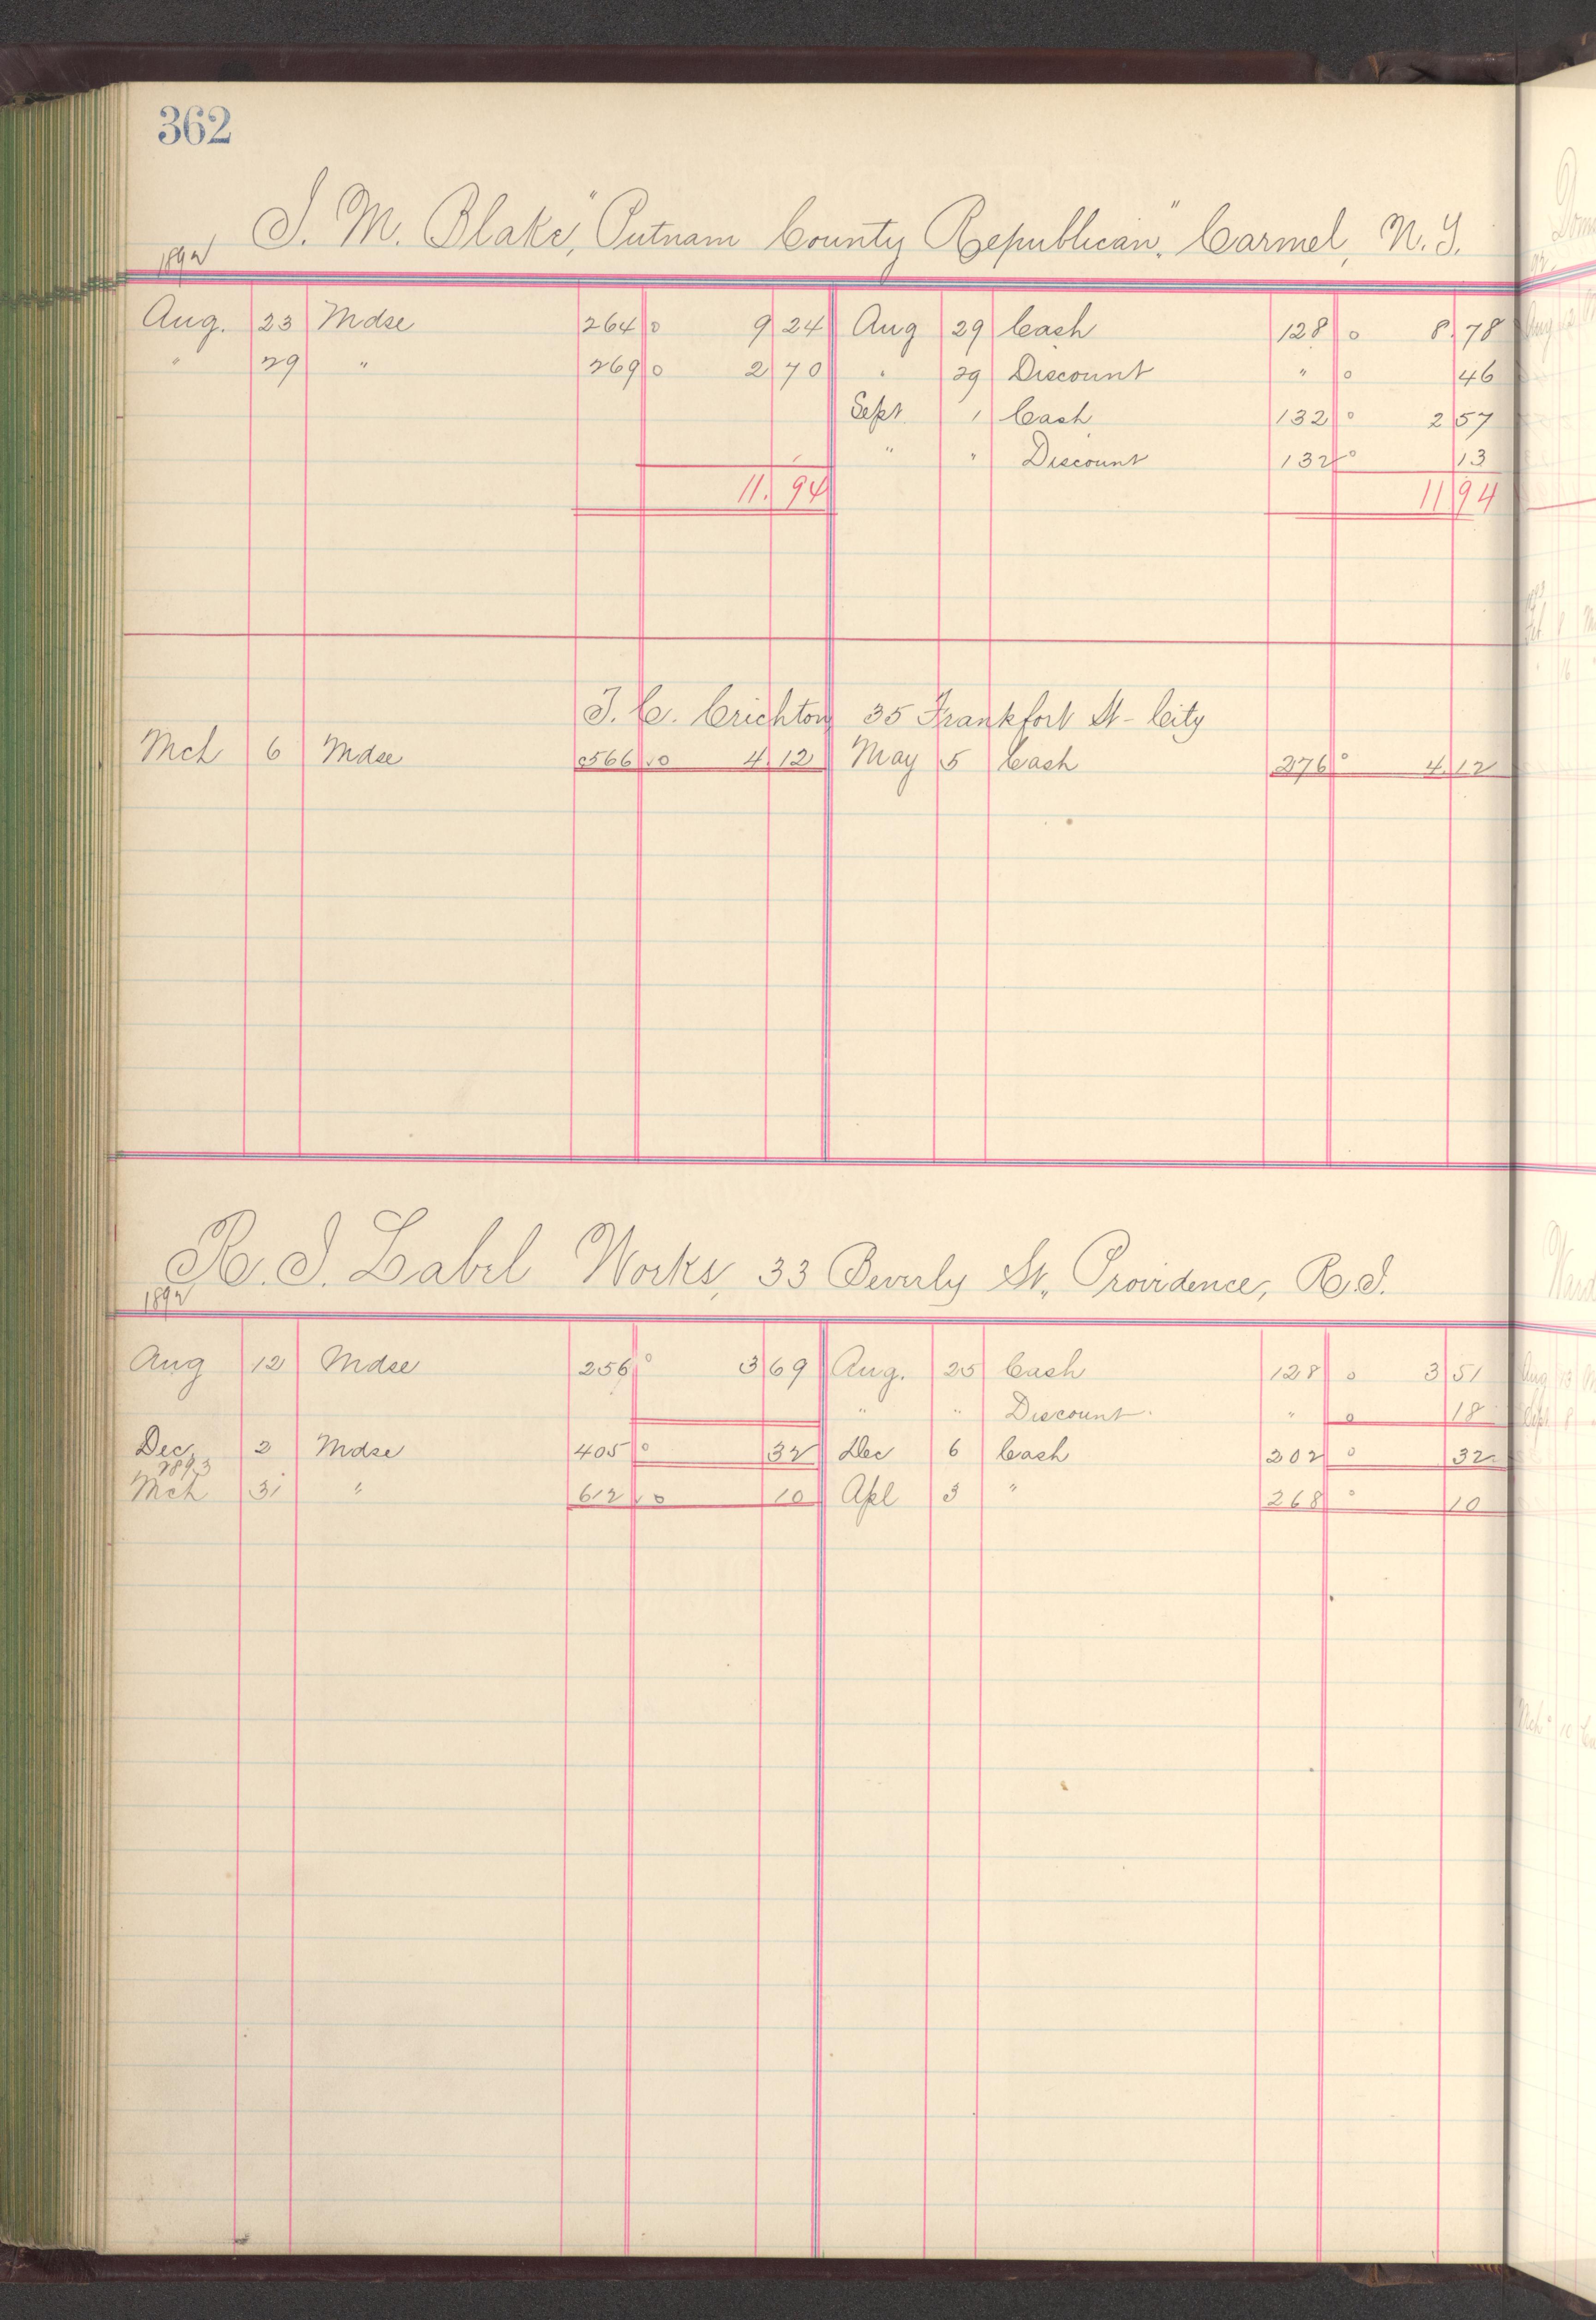 362
I. M. Blake, "Putnam County Republican," Carmel, N.Y.
1892
Aug. 23 Mdse 264 0 9 24 Aug 29 Cash 128 0 8.78
" 29 " 269 0 2 70 " 29 Discount " 0 46
Sept 1 Cash 132 0 2 57
" " Discount 132 0 13
11.94 11 94
J. C. Crichton 35 Frankfort St- City
Mch 6 Mdse 566 0 4 12 May 5 Cash 276 0 4.12
R. I. Label Works, 33 Beverly St., Providence, R.I.
1892
Aug 12 Mdse 256 0 3 69 Aug. 25 Cash 128 0 3 51
" " Discount " 0 18
Dec 2 Mdse 405 0 32 Dec 6 Cash 202 0 32
1893
Mch 31 " 612 0 10 Apl 3 " 268 0 10